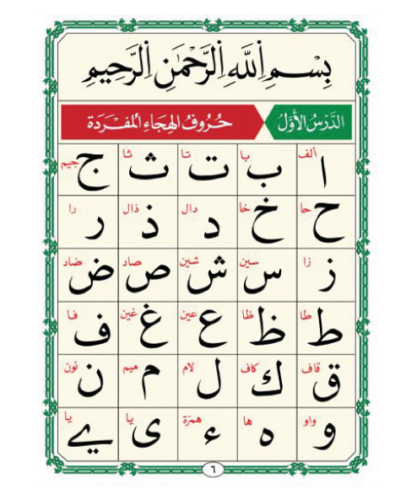 بِسْمِ اللَّهِ الرَّحْمَٰنِ الرَّحِيمِ
الدَّرْسُ الأَوَّلُ حُرُوفُ الهِجَاءِ المُفْرَدَةِ
ألف با تا ثا جيم
ا ب ت ث ج
حا خا دال ذال را
ح خ د ذ ر
زا سين شين صاد ضاد
ز س ش ص ض
طا ظا عين غين فا
ط ظ ع غ ف
قاف كاف لام ميم نون
ق ك ل م ن
واو ها همزة يا يا
و ه ء ى ے
٦